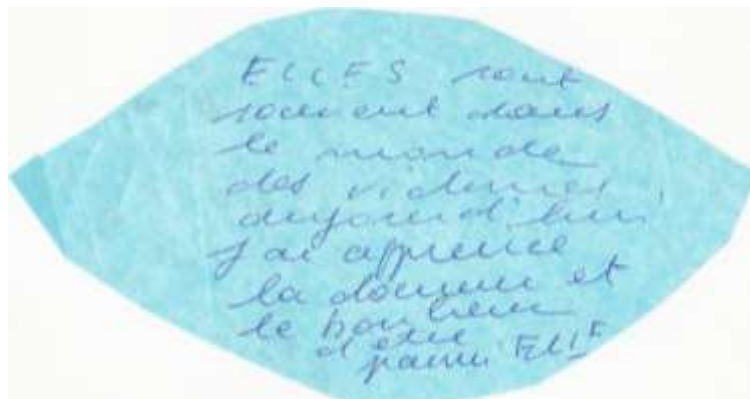 ELLES sont
souvent dans
le monde
des victimes,
aujourd'hui
j'ai apprence
la douceur et
le bonheur
d'etre
parmi ELLE